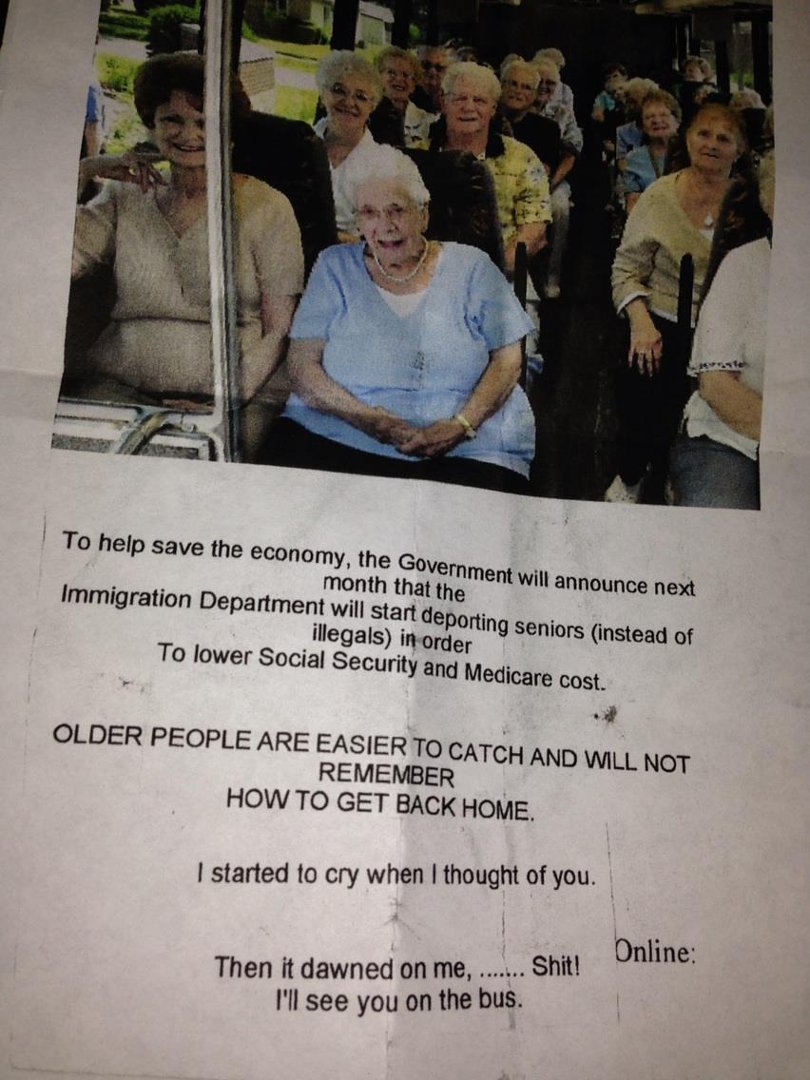 To help save the economy, the Government will announce next
month that the
Immigration Department will start deporting seniors (instead of
illegals) in order
To lower Social Security and Medicare cost.
OLDER PEOPLE ARE EASIER TO CATCH AND WILL NOT
REMEMBER
HOW TO GET BACK HOME.
I started to cry when I thought of you.
Online:
Then it dawned on me, ....... Shit!
I'll see you on the bus.